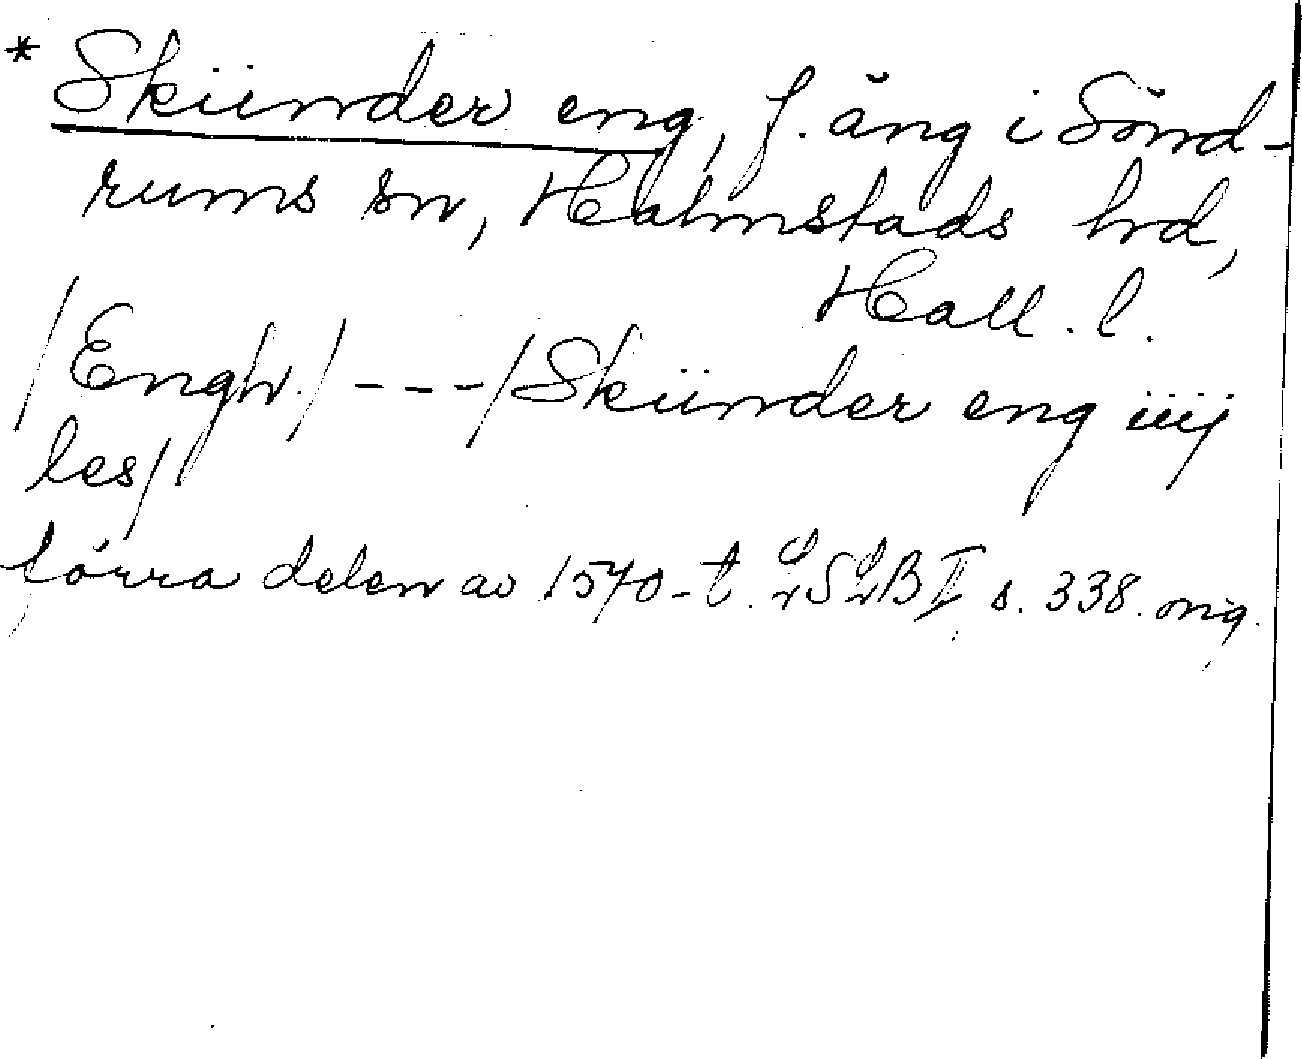 * Skiinder eng, f. äng i Sönd-
rums sn, Halmstads hd,
Hall. l.
/Engh./ --- /Skiinder eng iiij
les/
förra delen av 1570-t. LSLB II s. 338. orig.